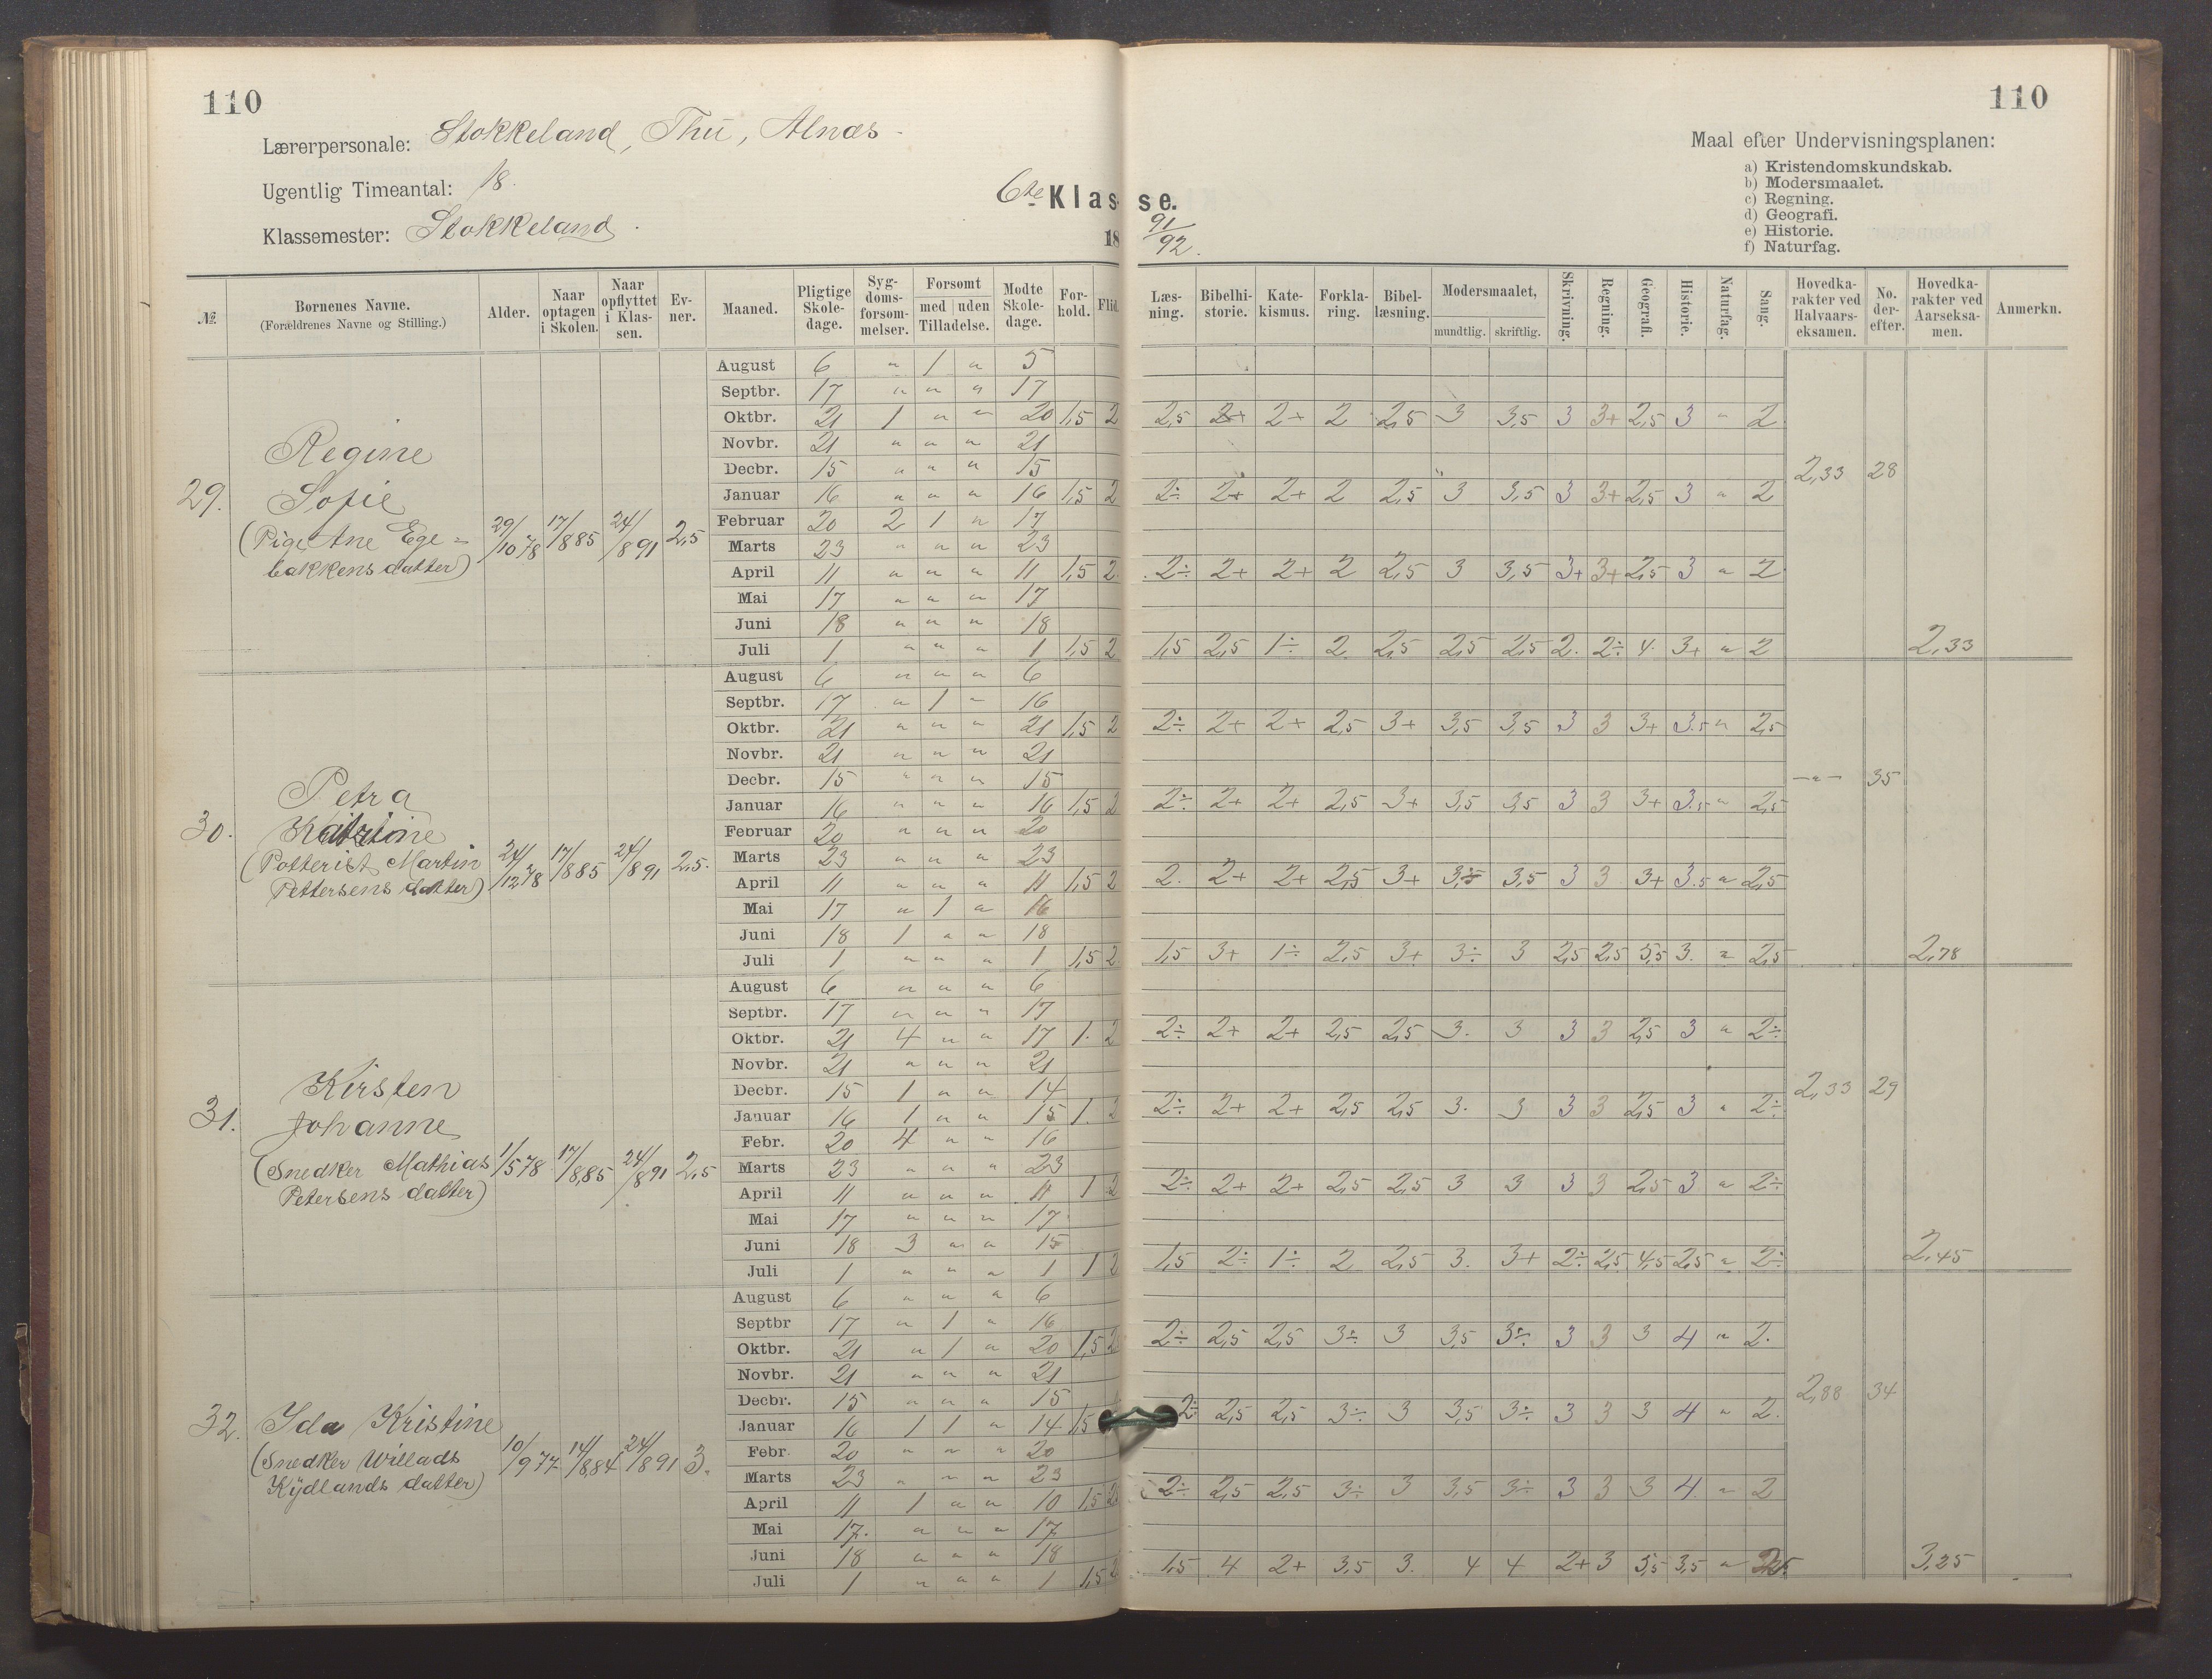 110
Lærerpersonale: Stokkeland, Thu, Alnæs
Ugentlig Timeantal: 18.
Klassemester: Stokkeland.
6te Klasse.
18 91/92.
110
Maal efter Undervisningsplanen:
a) Kristendomskundskab.
b) Modersmaalet.
c) Regning.
d) Geografi.
e) Historie.
f) Naturfag.
№ | Bornenes Navne. (Forældrenes Navne og Stilling.) | Alder. | Naar optagen i Skolen. | Naar opflyttet i Klassen. | Evner. | Maaned. | Pligtige Skoledage. | Sygdomsforsommelser. | Forsomt med uden Tilladelse. | Modte Skoledage. | Forhold. | Flid. | Læsning. | Bibelhistorie. | Katekismus. | Forklaring. | Bibellæsning. | Modersmaalet, mundtlig. skriftlig. | Skrivning. | Regning. | Geografi. | Historie. | Naturfag. | Sang. | Hovedkarakter ved Halvaarseksamen. | No. derefter. | Hovedkarakter ved Aarseksamen. | Anmerkn.
29. Regine
Sofie
(Pige Ane Ege=
bakkens datter) 29/10 78 17/8 85 24/8 91 2,5
August 6 " 1 " 5
Septbr. 17 " " " 17
Oktbr. 21 1 " " 20 1,5 2 2,5 2+ 2+ 2 2,5 3 3,5 3 3+ 2,5 3 " 2
Novbr. 21 " " " 21
Decbr. 15 " " " 15 2,33 28
Januar 16 " " " 16 1,5 2 2÷ 2+ 2+ 2 2,5 3 3,5 3 3+ 2,5 3 " 2
Februar 20 2 1 " 17
Marts 23 " " " 23
April 11 " " " 11 1,5 2. 2÷ 2+ 2+ 2 2,5 3 3,5 3+ 3+ 2,5 3 " 2
Mai 17 " " " 17
Juni 18 " " " 18
Juli 1 " " " 1 1,5 2 1,5 2,5 1÷ 2 2,5 2,5 2,5 2. 2÷ 4. 3+ " 2 2,33
30. Petra
(Potterist Martin
Pettersens datter) 24/12 78 17/8 85 24/8 91 2,5.
August 6 " " " 6
Septbr. 17 " 1 " 16
Oktbr. 21 " " " 21 1,5 2 2÷ 2+ 2+ 2,5 3+ 3,5 3,5 3 3 3+ 3.5 " 2,5
Novbr. 21 " " " 21
Decbr. 15 " " " 15 —"— 35
Januar 16 " " " 16 1,5 2 2÷ 2+ 2+ 2,5 3+ 3,5 3,5 3 3 3+ 3.5 " 2,5
Februar 20 " " " 20
Marts 23 " " " 23
April 11 " " " 11 1,5 2 2. 2+ 2+ 2,5 3+ 3,5 3,5 3 3 3+ 3.5 " 2,5
Mai 17 " 1 " 16
Juni 18 1 " " 18
Juli 1 " " " 1 1,5 2 1,5 3+ 1÷ 2,5 3+ 3÷ 3 2,5 2,5 5,5 3. " 2,5 2,78
31. Kirsten
Johanne
(Snedker Mathias
Petersens datter) 1/5 78 17/8,85 24/8 91 2,5
August 6 " " " 6
Septbr. 17 " " " 17
Oktbr. 21 4 " " 17 1. 2 2÷ 2+ 2+ 2,5 2,5 3. 3 3 3 2,5 3 " 2÷
Novbr. 21 " " " 21
Decbr. 15 1 " " 14 2,33 29
Januar 16 1 " " 15 1. 2 2÷ 2+ 2+ 2,5 2,5 3. 3 3 3 2,5 3 " 2÷
Febr. 20 4 " " 16
Marts 23 " " " 23
April 11 " " " 11 1 2 2÷ 2+ 2+ 2,5 2,5 3 3 3 3 2,5 3 " 2÷
Mai 17 " " " 17
Juni 18 3 " " 15
Juli 1 " " " 1 1 2 1,5 2÷ 1÷ 2 2,5 3. 3+ 2÷ 2,5 4,5 2,5 " 2÷ 2,45
32. Ida Kristine
(Snedker Willads
Kydlands datter) 10/9 77 14/8,84 24/8 91 3.
August 6 " " " 6
Septbr 17 " 1 " 16
Oktbr. 21 " 1 " 20 1,5 2 2÷ 2,5 2,5 3÷ 3 3,5 3÷ 3 3 3 4 " 2.
Novbr. 21 " " " 21
Decbr. 15 " " " 15 2,88 34
Januar 16 1 1 " 14 1,5 2÷ 2,5 2,5 3÷ 3 3,5 3÷ 3 3 3 4 " 2.
Febr. 20 " " " 20
Marts 23 " " " 23
April 11 1 " " 10 1,5 2 2÷ 2,5 2,5 3÷ 3 3,5 3÷ 3 3 3 4 " 2
Mai 17. " " " 17
Juni 18 " " " 18
Juli 1 " " " 1 1,5 2 1,5 4 2+ 3,5 3. 4 4 2+ 3 5,5 3,5 " 3,25